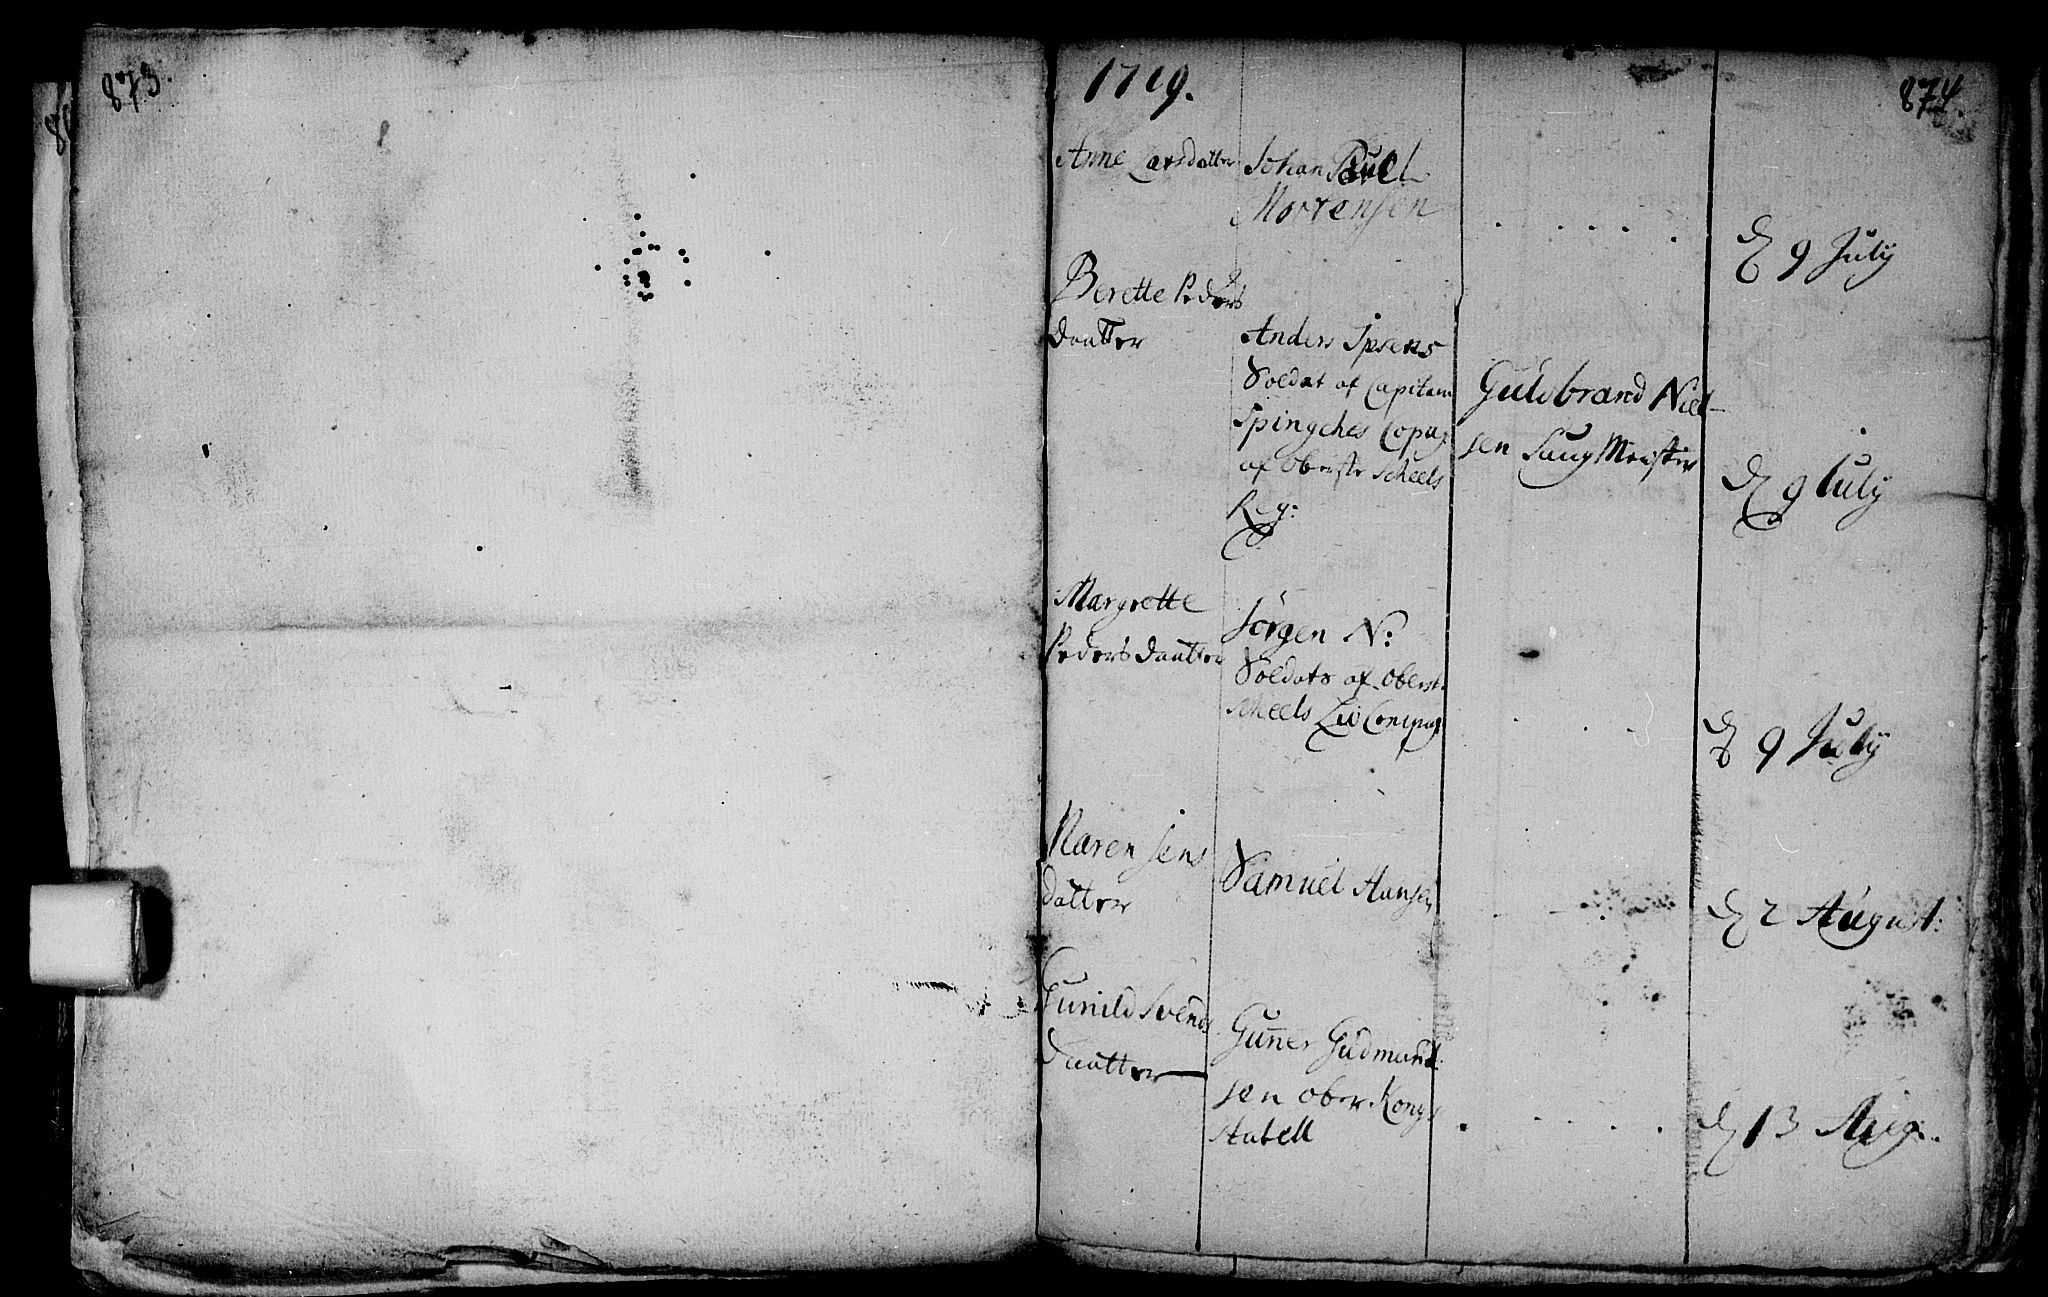 873.
1719.
874.
Anne Larsdatter
Johan Paul
Mortensen
d 9 July
Berette Peders
daatter
Anders Ipsens
Soldat af Capitain
Spingches Copag
af Oberste Scheels
Reg:
Guldbrand Niel
sen Laug Meister
d 9 July
Margrette
Peders daatter
Jörgen N:
Soldats af Oberst
Scheels Liv Compag
d 9 July
Maren Jens
datter
Samuel Hansen
d 2 August:
Gunild Svends
daatter
Gunner Gudmund
sen ober Kong
stabell
d 13 Aug.